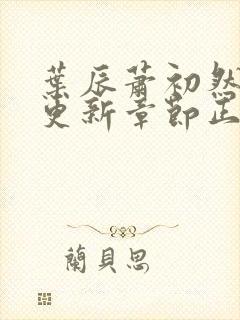 葉辰蕭初然
更新章節正
蘭貝思